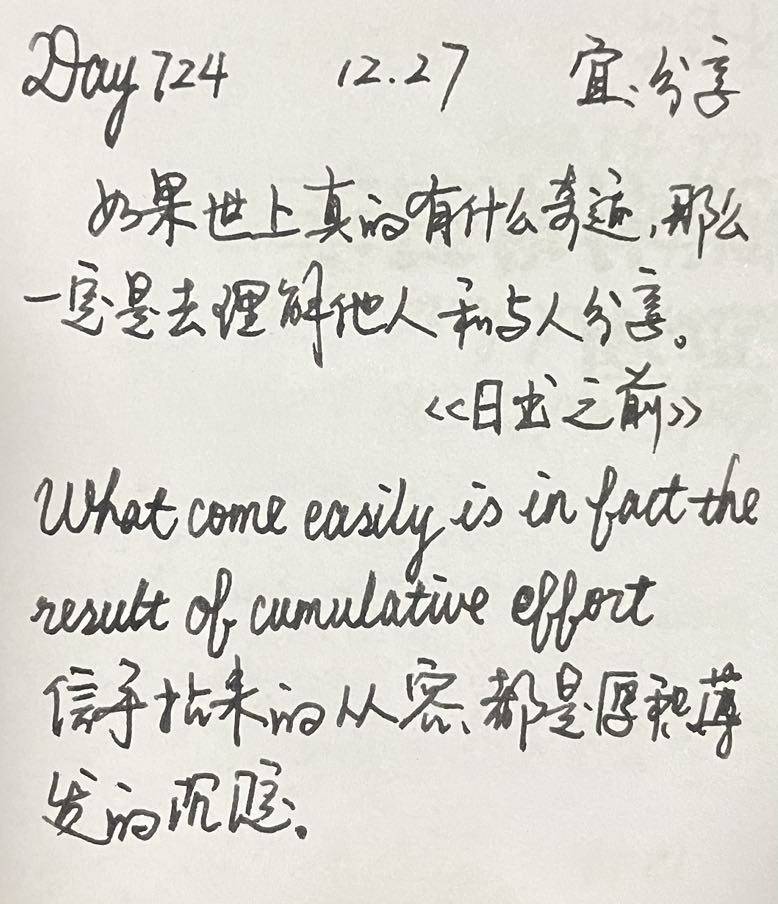 Day 724 12.27 宜:分享
如果世上真的有什么奇迹,那么
一定是去理解他人和与人分享。
<<日出之前>>
What come easily is in fact the
result of cumulative effort
信手拈来的从容、都是厚积薄
发的沉淀。